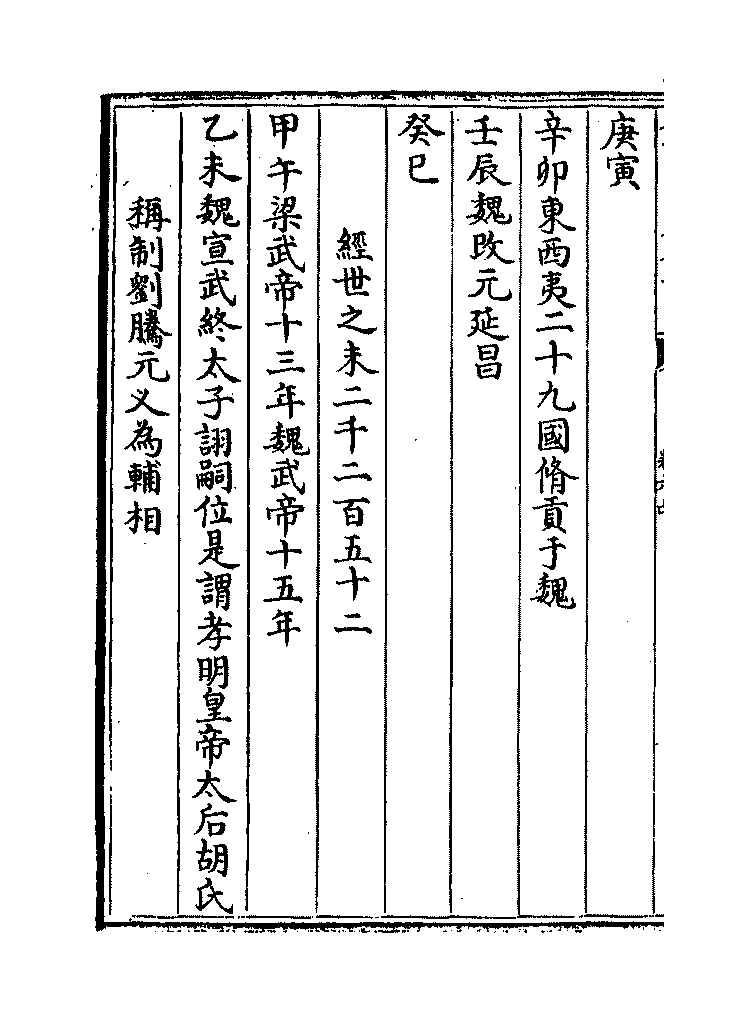 庚寅
辛卯東西夷二十九國脩貢于魏
壬辰魏改元延昌
癸巳
經世之未二千二百五十二
甲午梁武帝十三年魏武帝十五年
乙未魏宣武終太子詡嗣位是謂孝明皇帝太后胡氏
稱制劉騰元义為輔相